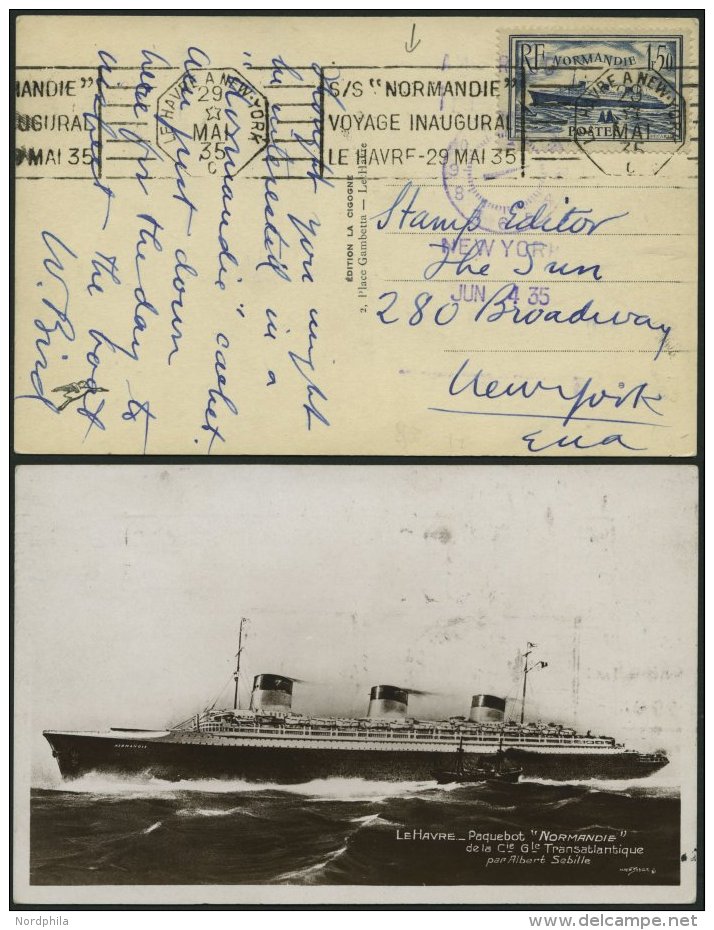 RF NORMANDIE 1,50
POSTES
NORMANDIE"
INAUGURAL
29 MAI 35
LE HAVRE A NEW-YORK
29
MAI
35
C
S/S "NORMANDIE"
VOYAGE INAUGURAL
LE HAVRE-29 MAI 35
LE HAVRE A NEW-YORK
29
MAI
35
C
NEW YORK
JUN 4 35
Thought you might
be interested in a
"Normandie" cachet.
Am just down
here for the day to
inspect the boat
W. Bird
ÉDITION LA CIGOGNE
2, Place Gambetta — Le Havre
Stamp Editor
The Sun
280 Broadway
New York
NORMANDIE
LE HAVRE _ Paquebot "NORMANDIE"
de la Cie Gle Transatlantique
par Albert Sebille
Nordphila